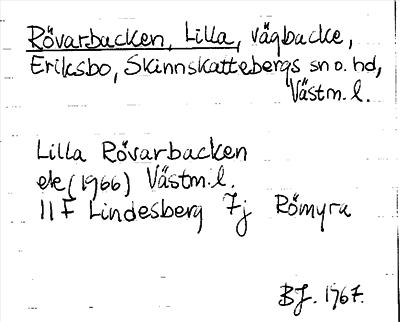 Rövarbacken, Lilla, vägbacke,
Eriksbo, Skinnskattebergs sn o. hd,
Västm. l.
Lilla Rövarbacken
ek (1966) Västm. l.
11 F Lindesberg 7j Römyra
BJ. 1967.